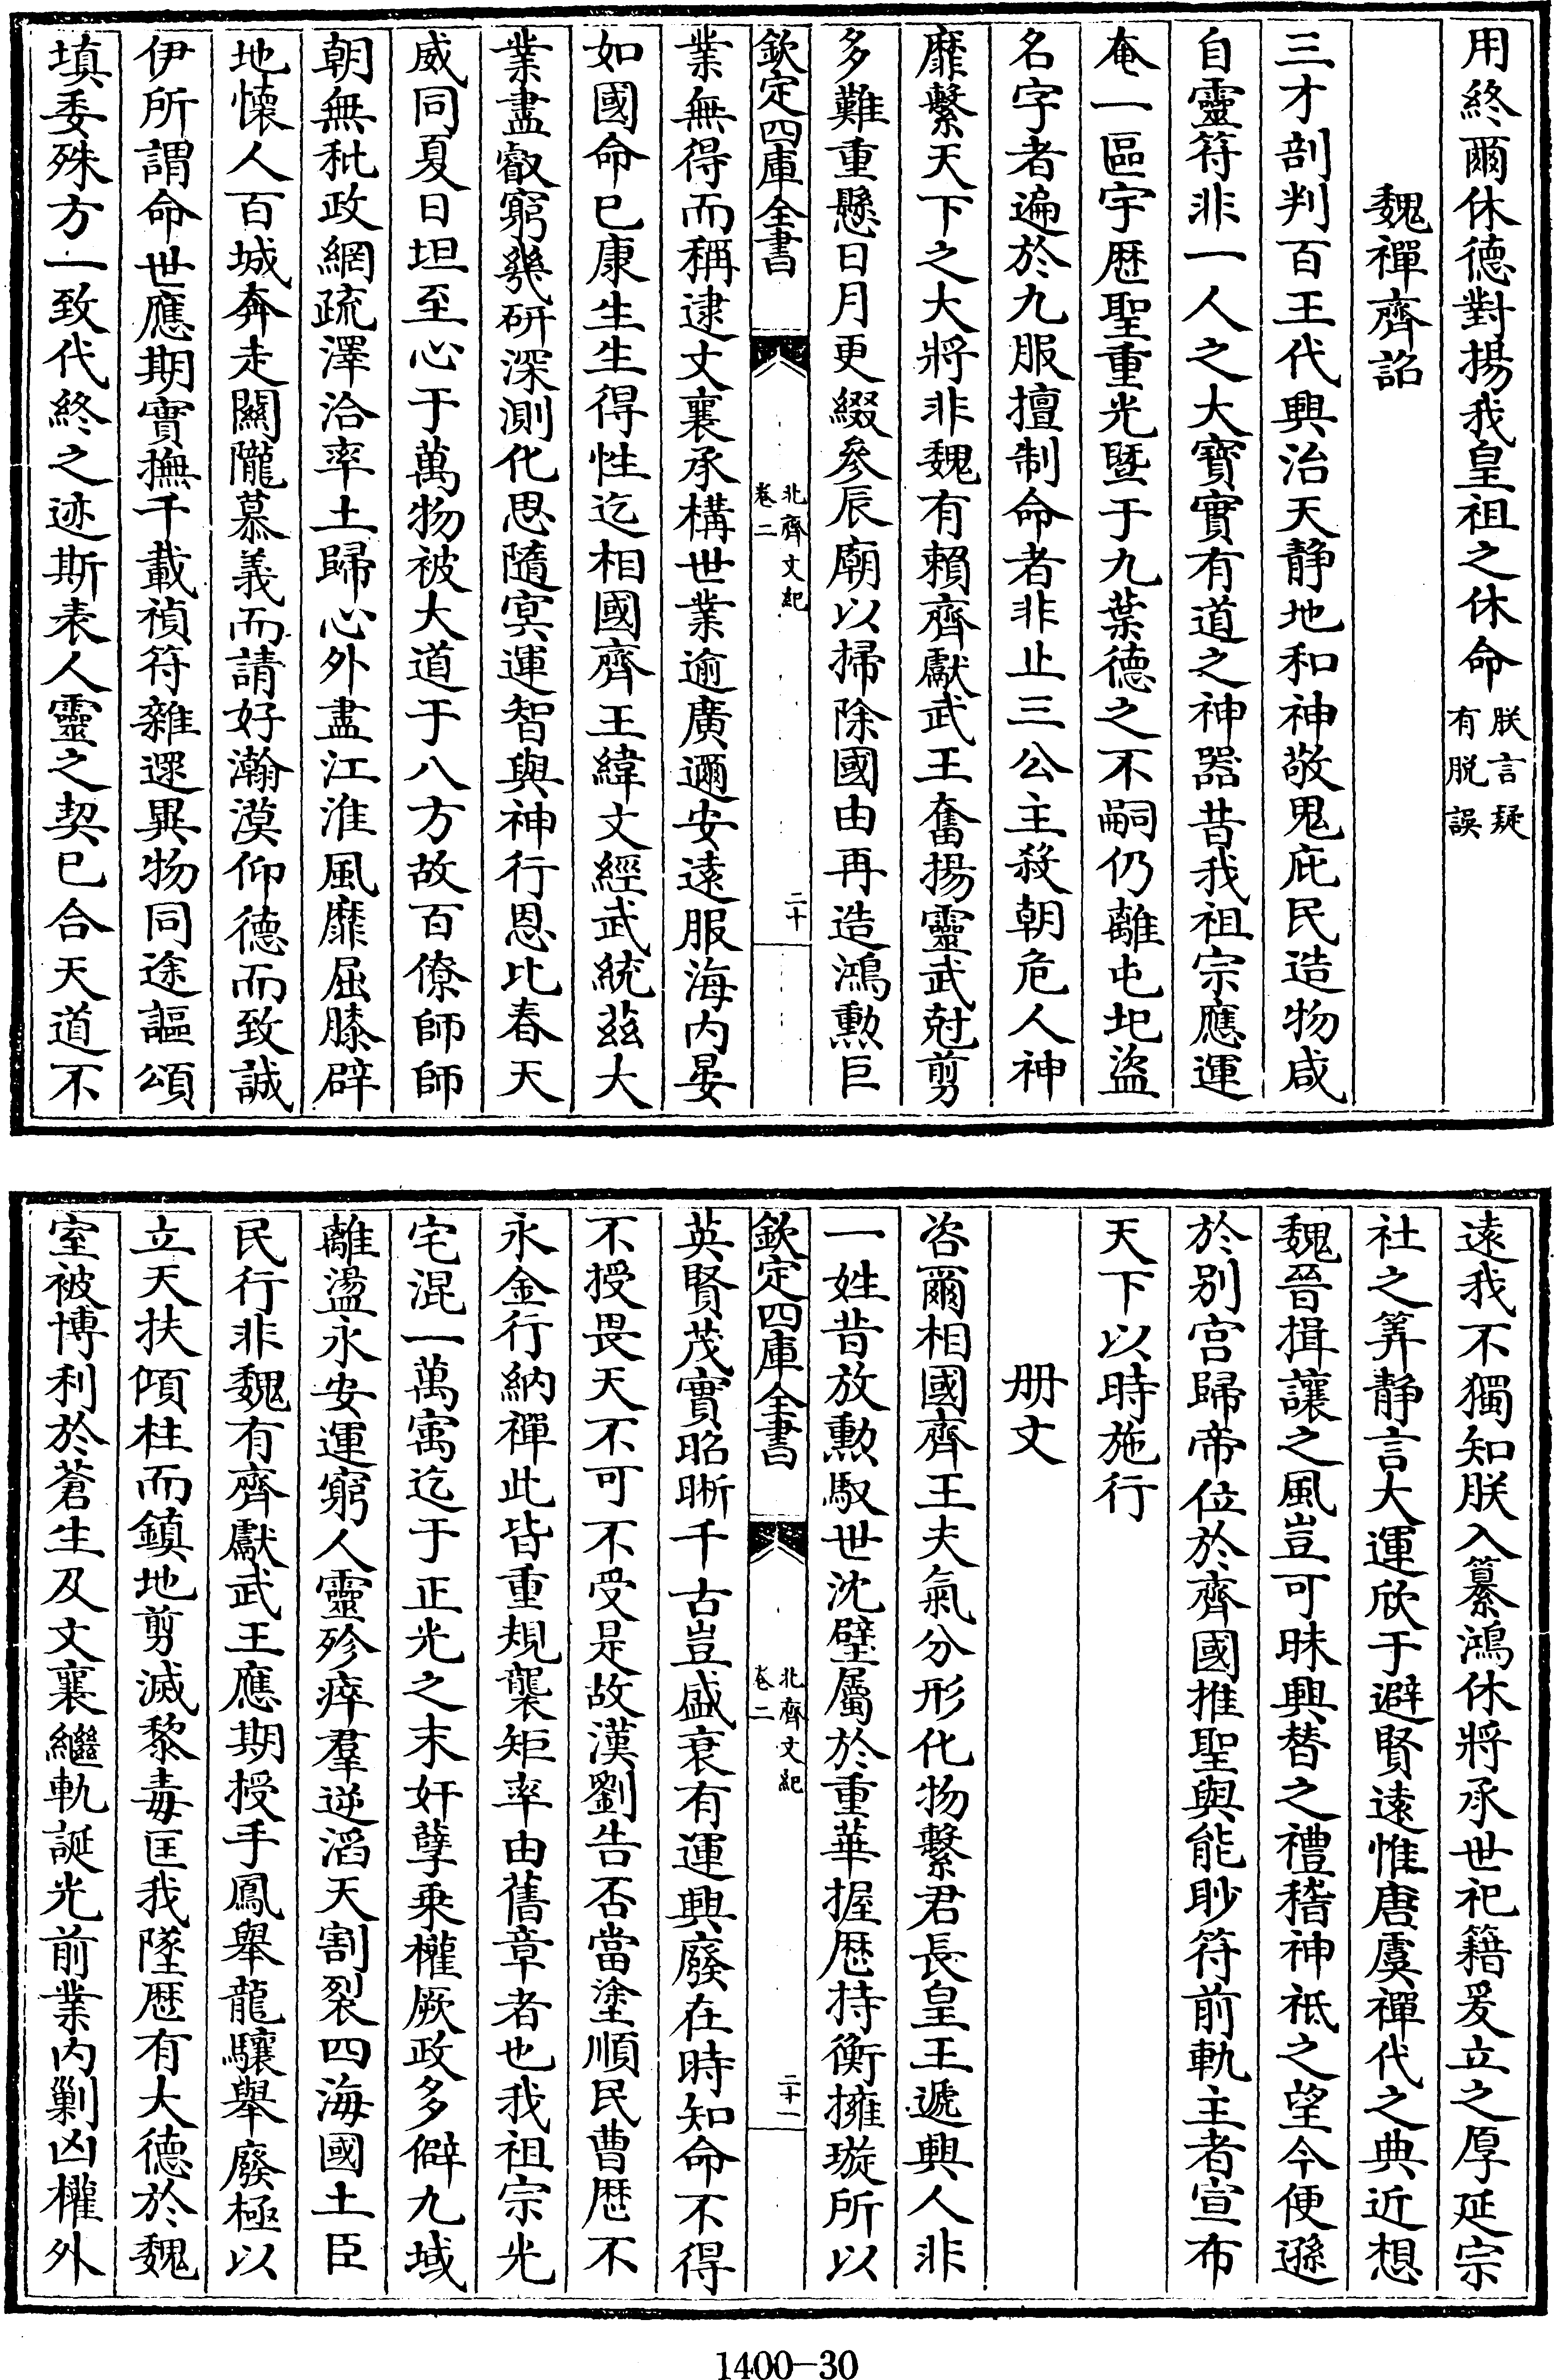 用終爾休德對揚我皇祖之休命朕言疑有脱誤
魏禪齊詔
三才剖判百王代興治天静地和神敬鬼庇民造物咸
自靈符非一人之大寶實有道之神器昔我祖宗應運
奄一區宇歴聖重光暨于九葉德之不嗣仍離屯圯盜
名字者遍於九服擅制命者非止三公主殺朝危人神
靡繫天下之大將非魏有賴齊獻武王奮揚靈武尅剪
多難重懸日月更綴參辰廟以掃除國由再造鴻勲巨
欽定四庫全書
北齊文紀
卷二
二十
業無得而稱逮文襄承構世業逾廣邇安遠服海内晏
如國命已康生生得性迄相國齊王緯文經武統兹大
業盡叡窮幾研深測化思隨冥運智與神行恩比春天
威同夏日坦至心于萬物被大道于八方故百僚師師
朝無秕政網疏澤洽率土歸心外盡江淮風靡屈膝辟
地懐人百城奔走關隴慕義而請好瀚漠仰德而致誠
伊所謂命世應期實撫千載禎符雜遝異物同途謳頌
填委殊方一致代終之迹斯表人靈之契已合天道不
遠我不獨知朕入纂鴻休將承世祀籍爰立之厚延宗
社之筭静言大運欣于避賢遠惟唐虞禪代之典近想
魏晉揖讓之風豈可昧興替之禮稽神祇之望今便遜
於別宫歸帝位於齊國推聖與能眇符前軌主者宣布
天下以時施行
册文
咨爾相國齊王夫氣分形化物繫君長皇王遞興人非
一姓昔放勲馭世沈璧屬於重華握歴持衡擁璇所以
欽定四庫全書
北齊文紀
卷二
二十一
英賢茂實昭晰千古豈盛衰有運興廢在時知命不得
不授畏天不可不受是故漢劉告否當塗順民曹歴不
永金行納禪此皆重規襲矩率由舊章者也我祖宗光
宅混一萬寓迄于正光之末奸孽乗權厥政多僻九域
離盪永安運窮人靈殄瘁羣逆滔天割裂四海國土臣
民行非魏有齊獻武王應期授手鳳舉龍驤舉廢極以
立天扶傾柱而鎮地剪滅黎毒匡我墜歴有大德於魏
室被博利於蒼生及文襄繼軌誕光前業内剿凶權外
1400—30